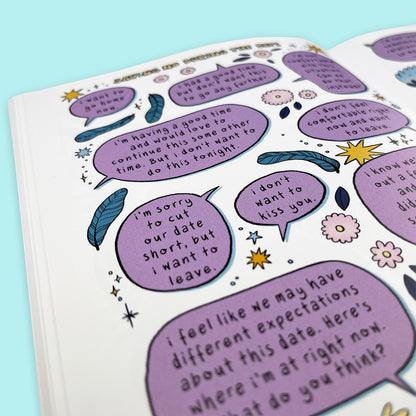 i want to
go home
now.
i had a good time
but i don't want this
to go any further.
i'm having a good time
and would love to
continue this some other
time but i don't want to
do this tonight.
don't feel
comfortable
now and want
to leave.
i'm sorry
to cut
our date
short, but
i want to
leave.
i don't
want to
kiss you.
i know
out a
and
i feel like we may have
different expectations
about this date. Here's
where i'm at right now.
what do you think?